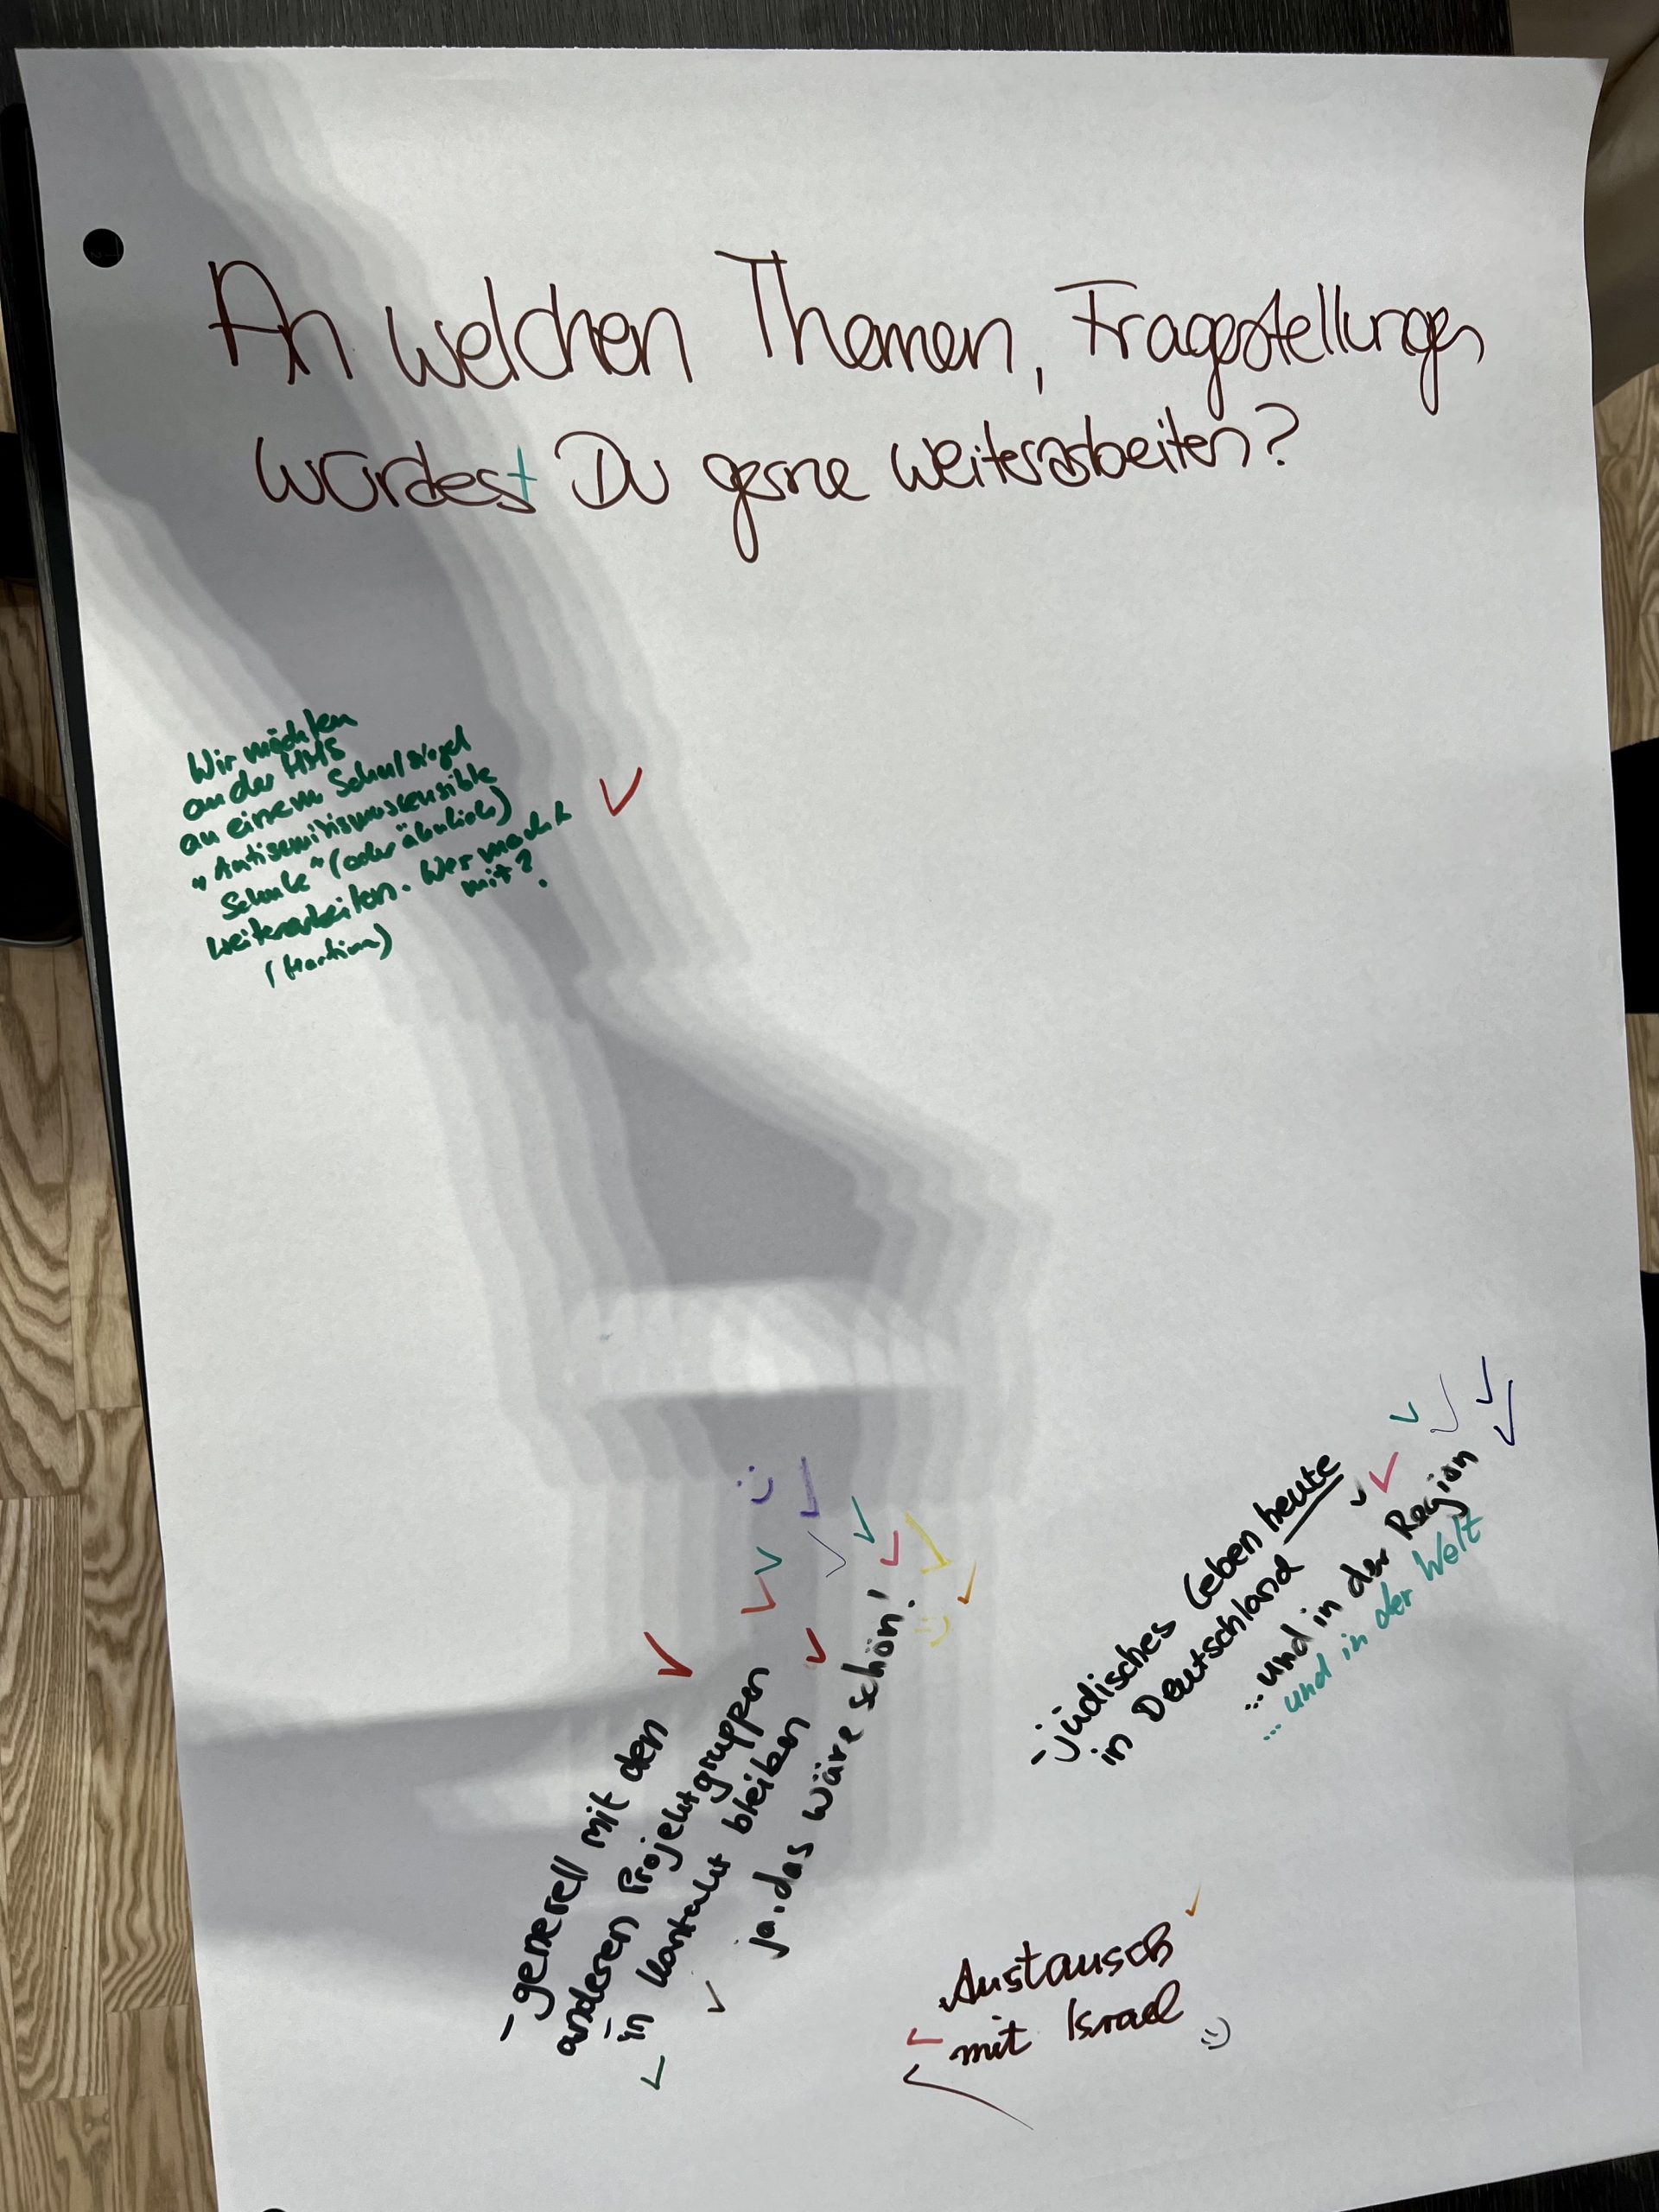 An welchen Themen, Fragestellungen
würdest Du gerne weiterarbeiten?
Wir möchten
an der HMS
an einem Schulsiegel
"Antisemitismussensible
Schule" (oder ähnlich)
weiterarbeiten. Wer macht
mit?
(Martina)
- generell mit den
anderen Projektgruppen
in Kontakt bleiben
ja, das wäre schön!
- jüdisches Leben heute
in Deutschland
... und in der Region
... und in der Welt
Austausch
mit Israel